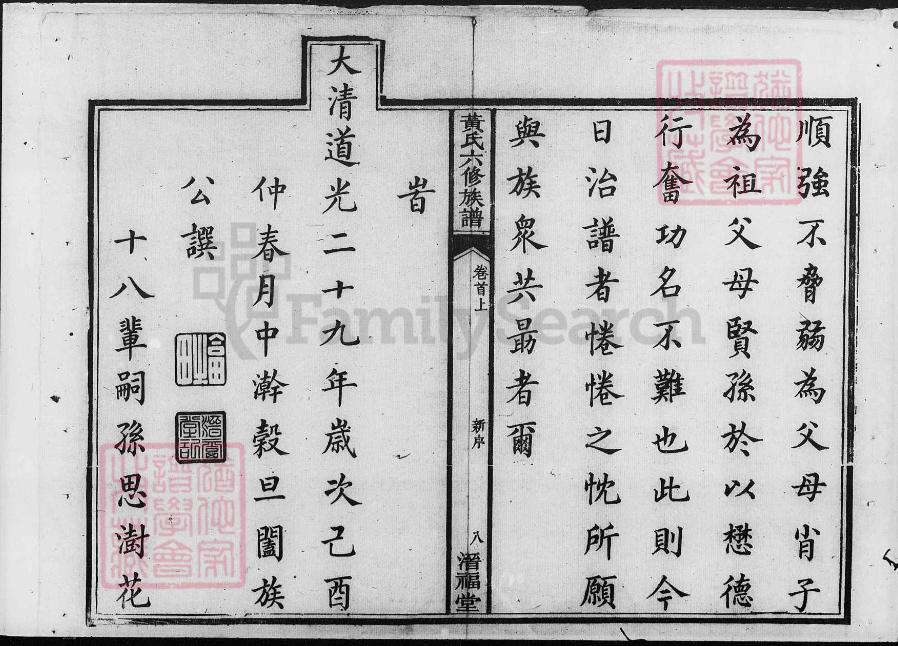 順強不脅弱為父母肖子
為祖父母賢孫於以懋德
行奮功名不難也此則今
日治譜者惓惓之忱所願
與族衆共最者爾
黃氏六修族譜
卷首上
新序
八
濳福堂
旹
大清道光二十九年歲次己酉
仲春月中澣穀旦闔族
公譔
十八輩嗣孫思澍花
FamilySearch